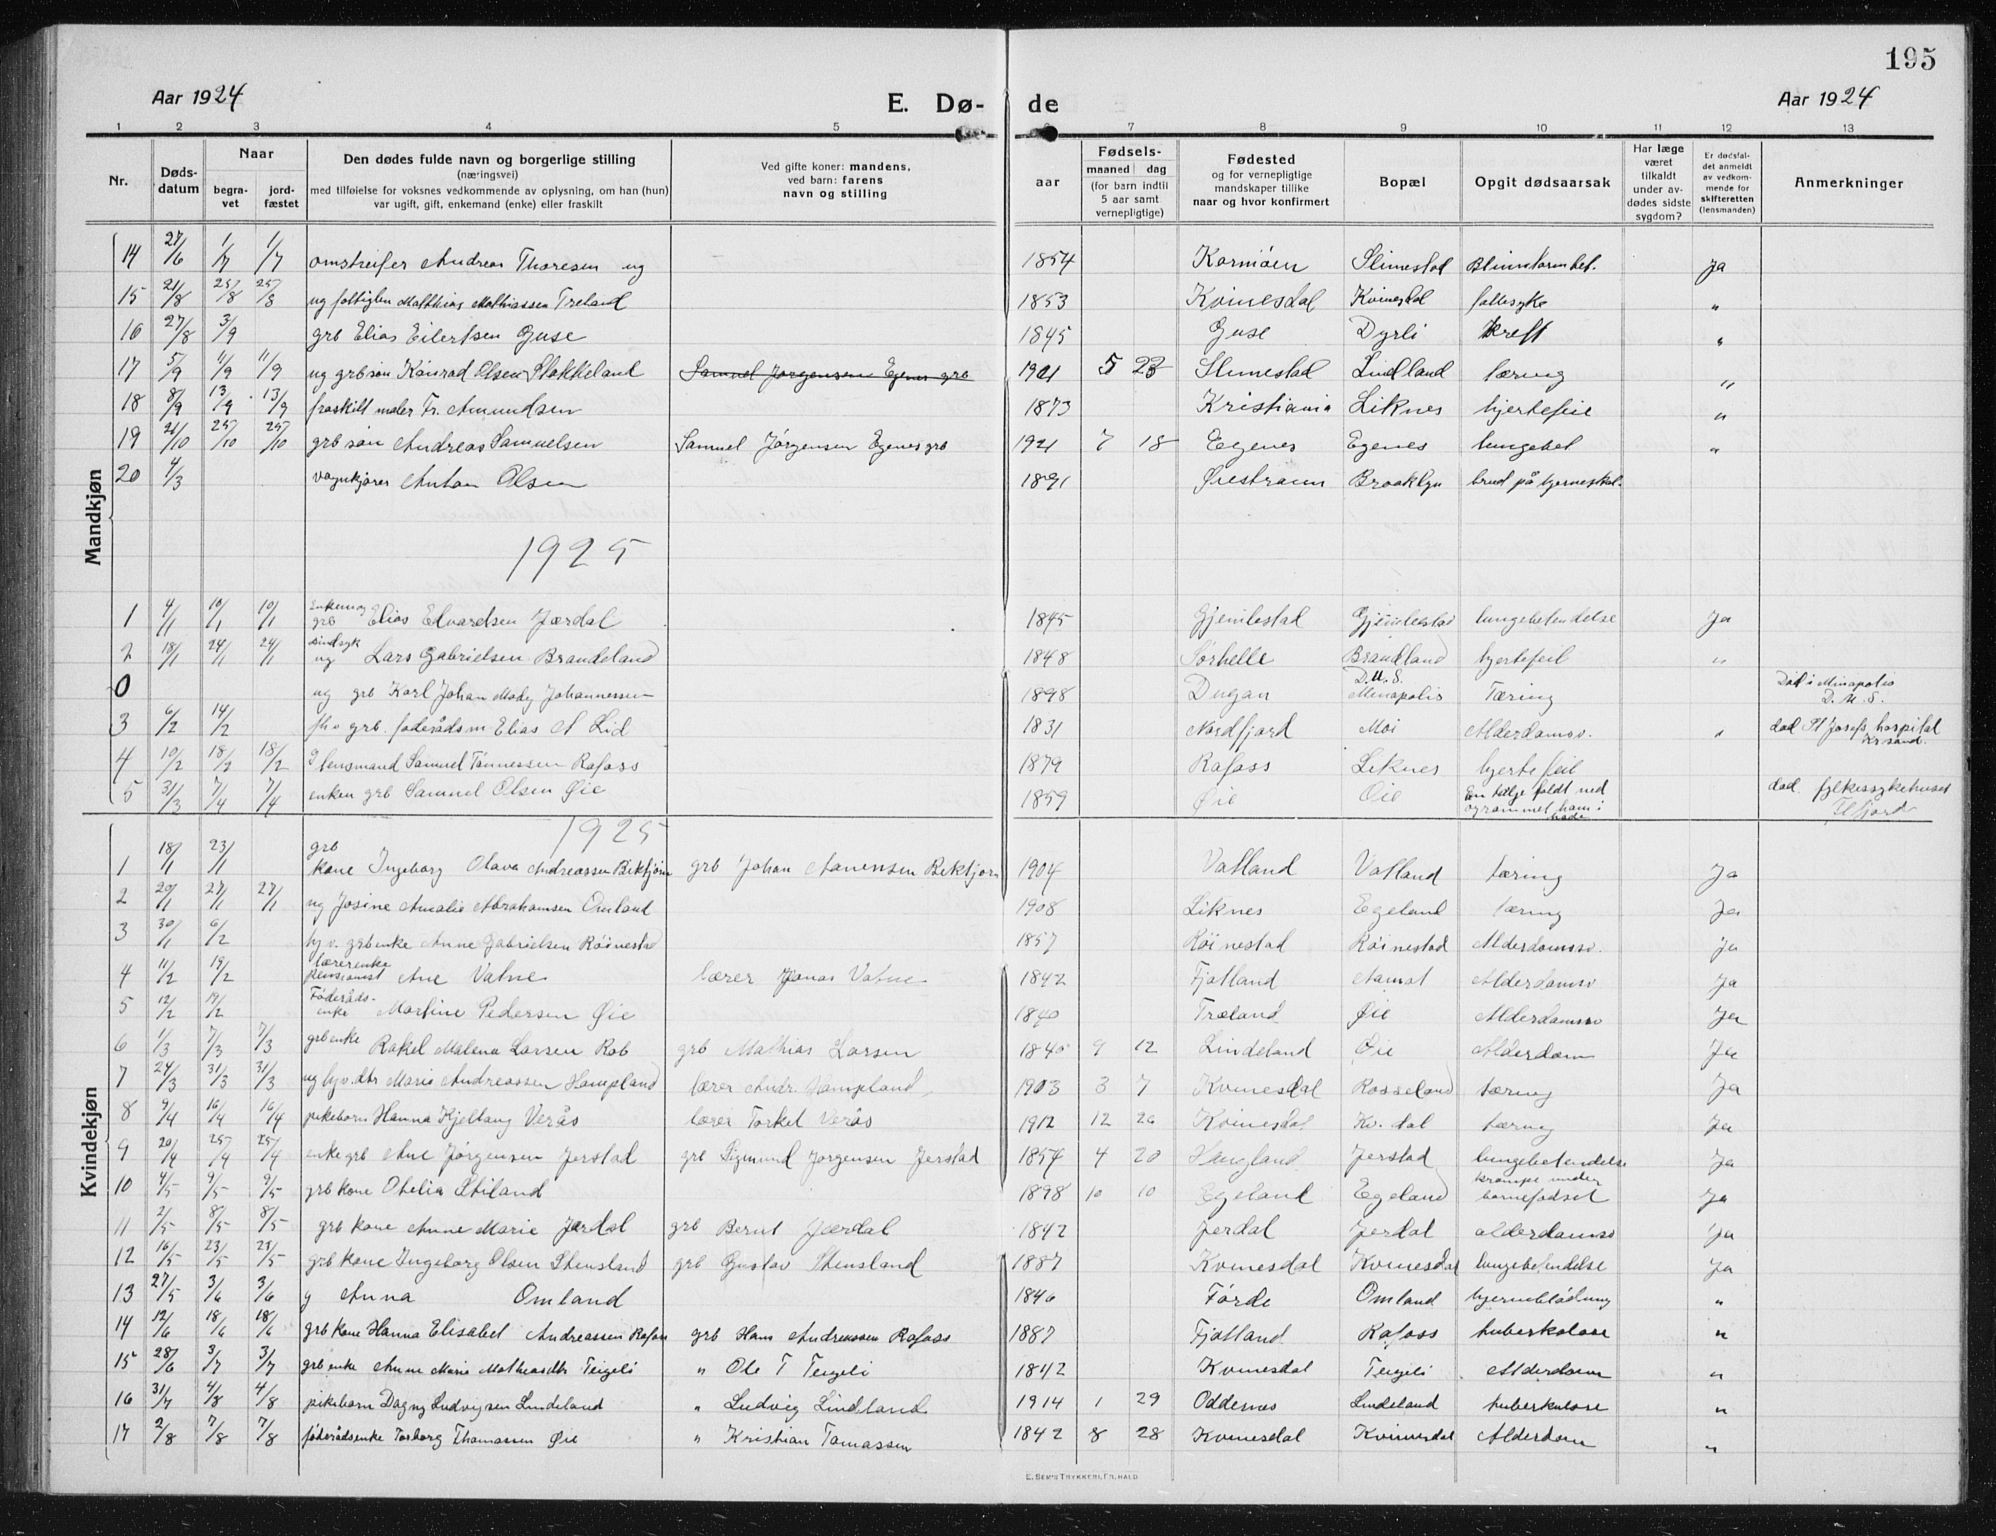 195
Aar 1924 E. Dø- de Aar 1924
1 2 3 4 5 6 7 8 9 10 11 12 13
Nr. Døds-datum Naar begra-vet jord-fæstet Den dødes fulde navn og borgerlige stilling (næringsvei) med tilføielse for voksnes vedkommende av oplysning, om han (hun) var ugift, gift, enkemand (enke) eller fraskilt Ved gifte koner: mandens, ved barn: farens navn og stilling aar Fødsels- maaned dag (for barn indtil 5 aar samt vernepligtige) Fødested og for vernepligtige mandskaper tillike naar og hvor konfirmert Bopæl Opgit dødsaarsak Har læge været tilkaldt under av-dødes sidste sygdom? Er dødsfal-det anmeldt av vedkom-mende for skifteretten (lensmanden) Anmerkninger
Mandkjøn
14 27/6 1/7 1/7 omstreifer Andreas Thoresen ug 1854 Karmöen Slimestad Ja
15 21/8 25/8 25/8 ug fattiglem Matthias Mathiassen Treland 1853 Kvinesdal Kvinesdal fallesyke "
16 27/8 3/9 grb Elias Eilertsen Guse 1845 Guse Dyrli Kreft "
17 5/9 11/9 11/9 ug grb søn Konrad Olsen Stakkeland Samuel Jørgensen Egenes grb 1901 5 23 Slimestad Lindland tæring "
18 8/9 13/9 13/9 fraskilt maler Fr. Amundsen 1873 Kristiania Liknes hjertefeil "
19 21/10 25/10 25/10 grb søn Andreas Samuelsen Samuel Jørgensen Egenes grb 1921 7 18 Egenes Egenes lungebet "
20 4/3 vognkjører Anton Olsen 1891 Øiestrann Brooklyn brud på hjerneskal.
1925
1 4/1 10/1 10/1 enkem og grb Elias Edvardsen Jærdal 1845 Gjemlestad Gjemlestad lungebetendelse Ja
2 18/1 24/1 24/1 sindsyk ug Lars Gabrielsen Brandeland 1848 Sørhelle Brandland hjertefeil "
0 ug grb Karl Johan Mody Johannessen 1898 Dugan Minapolis D.U.S. Tæring Död i Minapolis D.U.S.
3 6/2 14/2 fhv grb føderådsm Elias A Lid 1831 Nordfjord Moi Alderdomsv. " död St Josefs hospital Kr sand.
4 10/2 18/2 18/2 g lensmand Samuel Tönnessen Rafoss 1879 Rafoss Liknes hjertefeil
5 31/3 7/4 7/4 enkem grb Samuel Olsen Øie 1859 Øie Öie En tælje faldt ned og rammet ham i hode död fylkessykehuset Flfjord
1925
Kvindekjøn
1 18/1 23/1 grb kone Ingeborg Olava Andreassen Bekkjörn grb Johan Aanensen Bekkjörn 1904 Vatland Vatland tæring Ja
2 20/1 27/1 27/1 ug Josine Amalie Abrahamsen Omland 1908 Liknes Egeland tæring Ja
3 30/1 6/2 hj v. grb enke Anne Gabrielsen Röinestad 1857 Röinestad Röinestad Alderdomssv. ja
4 11/2 19/2 lærerenke pensionist Ane Vatne lærer Jonas Vatne 1842 Fjotland Aamot Alderdomsv Ja
5 12/2 19/2 Föderåds-enke Martine Pedersen Øie 1840 Træland Øie Alderdomssv Ja
6 1/3 7/3 7/3 grb enke Rakel Malena Larsen Rob grb Mathias Larsen 1840 9 12 Lindeland Øie Alderdom Ja
7 24/3 31/3 31/3 ug hjv. dtr Marie Andreassen Hampland lærer Andr. Hampland 1903 3 7 Kvinesdal Rosseland tæring Ja
8 9/4 16/4 16/4 pikebarn Hanna Kjellaug Verås lærer Torkel Verås 1912 12 26 Kvinesdal Kv. dal tæring Ja
9 20/4 25/4 25/4 enke grb Ane Jørgensen Jerstad grb Sigmund Jørgensen Jerstad 1854 4 20 Haugland Jerstad lungebetendelse Ja
10 4/5 9/5 9/5 grb kone Otelia Stiland 1898 10 10 Egeland Egeland krampe under barnefødsel Ja
11 2/5 8/5 8/5 grb kone Anne Marie Jerdal grb Bernt Jærdal 1842 Jerdal Jerdal alderdomsv Ja
12 16/5 23/5 23/5 grb kone Ingeborg Olsen Stensland grb Gustav Stensland 1887 Kvinesdal Kvinesdal lungebetendelse Ja
13 27/5 3/6 3/6 g Anna Omland 1846 Førde Omland hjerneblødning "
14 12/6 18/6 18/6 grb kone Hanna Elisabet Andreassen Rafoss grb Hans Andreassen Rafoss 1887 Fjotland Rafoss tuberkulose "
15 28/6 3/7 3/7 grb enke Anne Marie Mathiasdtr Teigeli " Ole T Teigeli 1842 Kvinesdal Teigeli Alderdom "
16 31/7 4/8 4/8 pikebarn Dagny Ludvigsen Lindeland " Ludvig Lindland 1914 1 29 Oddernes Lindeland tuberkulose "
17 2/8 7/8 7/8 føderådsenke Torborg Thomassen Øie " Kristian Tomassen 1842 8 28 Kvinesdal Kvinesdal Alderdom "
E. SEM'S TRYKKERI, FR.HALD